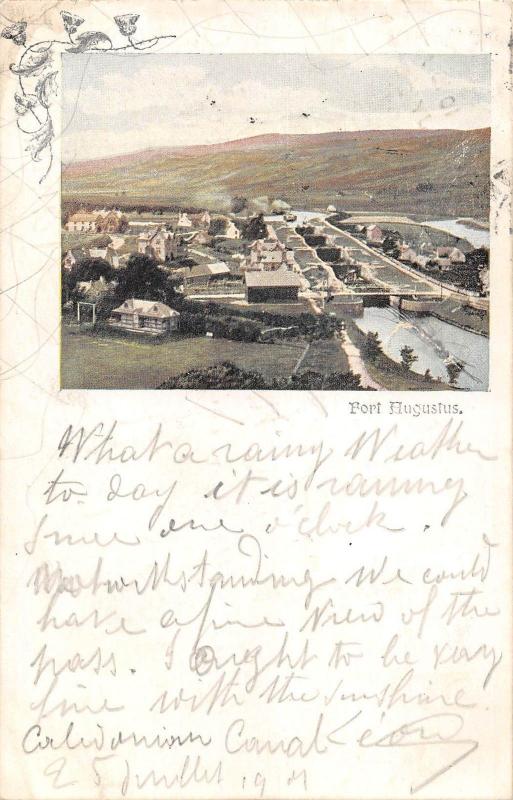 Fort Augustus.
What a rainy Weather
to day it is raining
since one o'clock.
Notwithstanding We could
have a fine View of the
pass. I ought to be very
fine with the sunshine
Caledonian Canal Léon
25 Juillet 1901